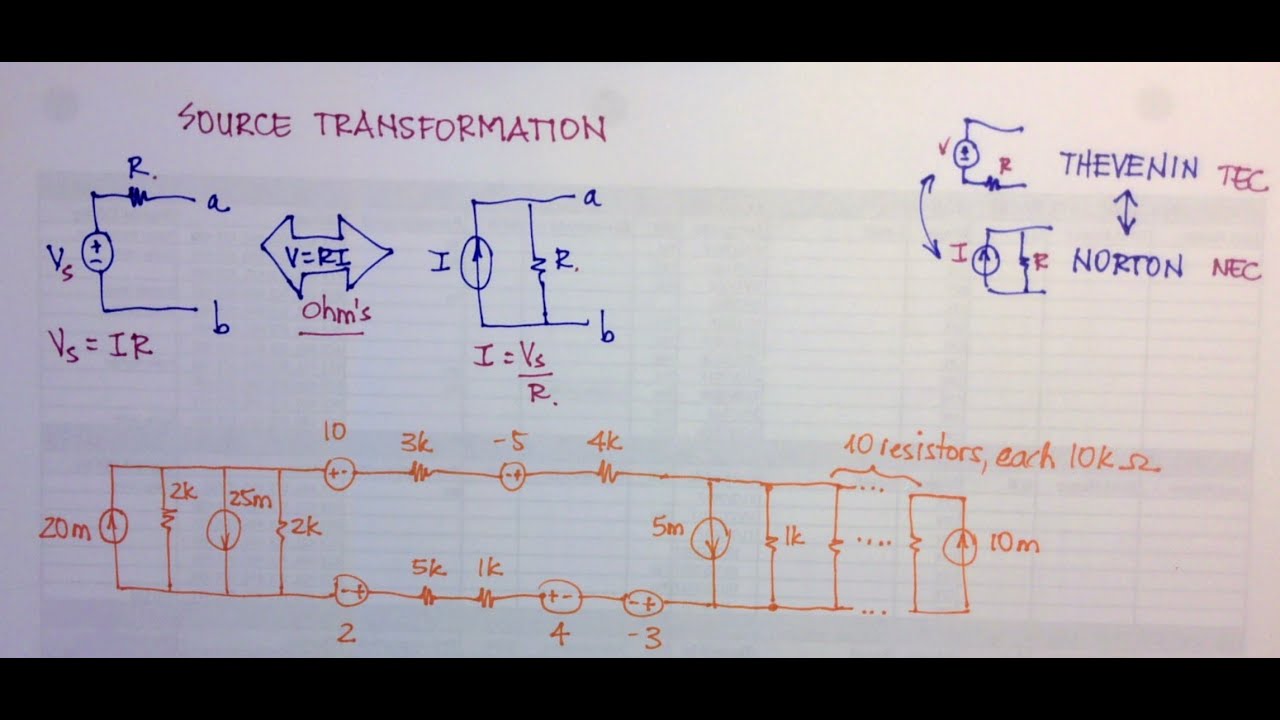 SOURCE TRANSFORMATION
R.
a
Vs
+
-
b
Vs = IR
V=RI
Ohm's
I
R.
a
b
I = Vs
R.
V
R
THEVENIN TEC
I
R
NORTON NEC
10
3k
-5
4k
10 resistors, each 10k Ω
+-
-+
....
20m
2k
25m
2k
5m
1k
....
10m
5k
1k
-+
+-
-+
...
2
4
-3